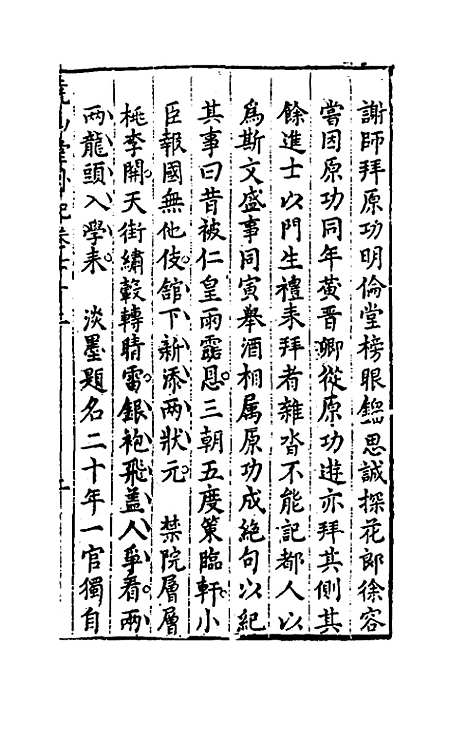 謝師拜原功明倫堂榜眼鎦思誠探花郎徐容
嘗因原功同年黄晋卿從原功遊亦拜其側其
餘進士以門生禮来拜者雜沓不能記都人以
爲斯文盛事同寅舉酒相属原功成絶句以紀
其事曰昔被仁皇雨露恩三朝五度策臨軒小
臣報國無他伎舘下新添兩狀元　禁院層層
桃李開天街繡轂轉晴雷銀袍飛盖人爭看兩
两龍頭入學来　淡墨題名二十年一官獨自
堯山堂外紀卷七十